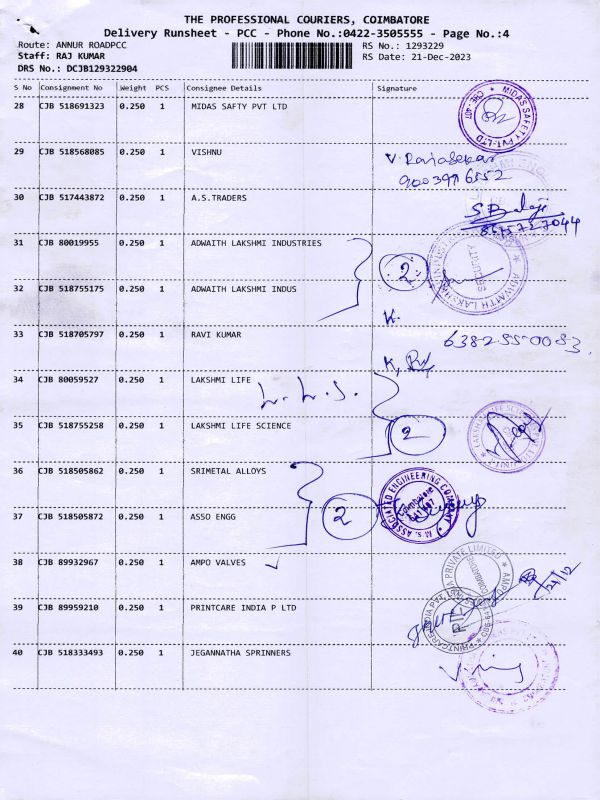 THE PROFESSIONAL COURIERS, COIMBATORE
Delivery Runsheet - PCC - Phone No.:0422-3505555 - Page No.:4
Route: ANNUR ROADPCC
RS No.: 1293229
Staff: RAJ KUMAR
RS Date: 21-Dec-2023
DRS No.: DCJB129322904
S No Consignment No Weight PCS Consignee Details Signature
28 CJB 518691323 0.250 1 MIDAS SAFTY PVT LTD
MIDAS SAFETY PVT. LTD
29 CJB 518568085 0.250 1 VISHNU
V. Rajasekar
30 CJB 517443872 0.250 1 A.S.TRADERS
S Balaji
31 CJB 80019955 0.250 1 ADWAITH LAKSHMI INDUSTRIES
2
32 CJB 518755175 0.250 1 ADWAITH LAKSHMI INDUS
K.
33 CJB 518705797 0.250 1 RAVI KUMAR
34 CJB 80059527 0.250 1 LAKSHMI LIFE
L. L. S.
35 CJB 518755258 0.250 1 LAKSHMI LIFE SCIENCE
2
36 CJB 518505862 0.250 1 SRIMETAL ALLOYS
M/S. ASSOCIATED ENGINEERING COMPANY
Coimbatore
37 CJB 518505872 0.250 1 ASSO ENGG
2
38 CJB 89932967 0.250 1 AMPO VALVES
21/12
39 CJB 89959210 0.250 1 PRINTCARE INDIA P LTD
40 CJB 518333493 0.250 1 JEGANNATHA SPRINNERS